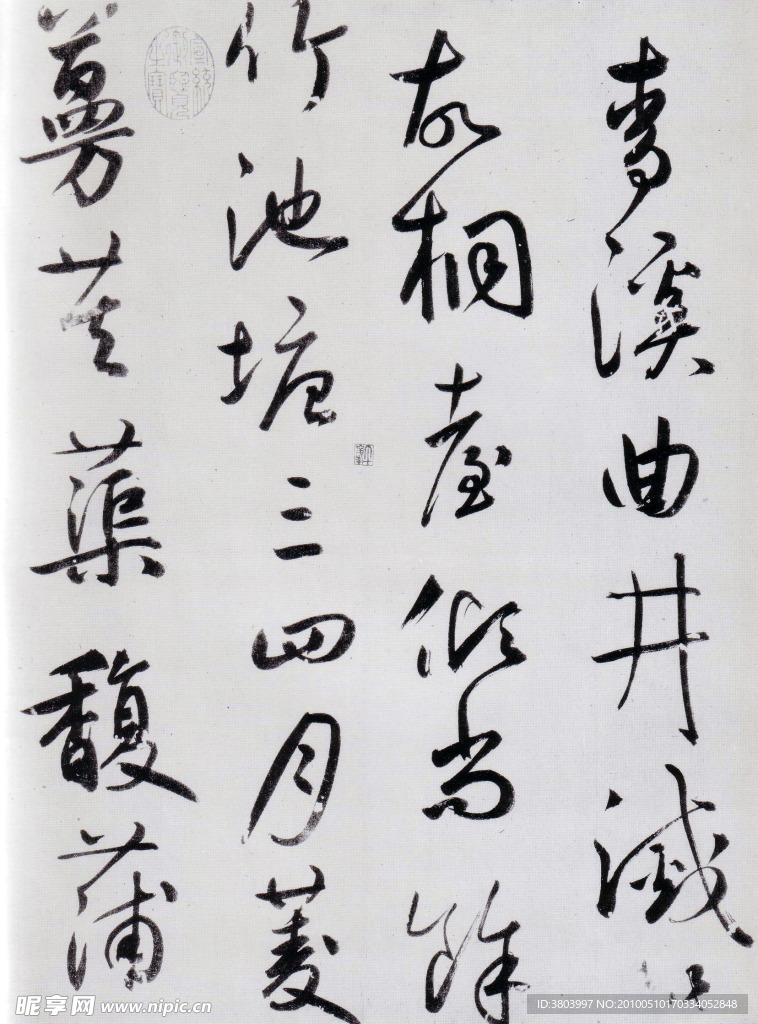 青溪曲井滅
故桐臺傾尚餘
竹池塘三四月菱
蔓芙蕖馥蒲
宣統御覽之寶
昵享网 www.nipic.cn
ID:3803997 NO:20100510170334052848